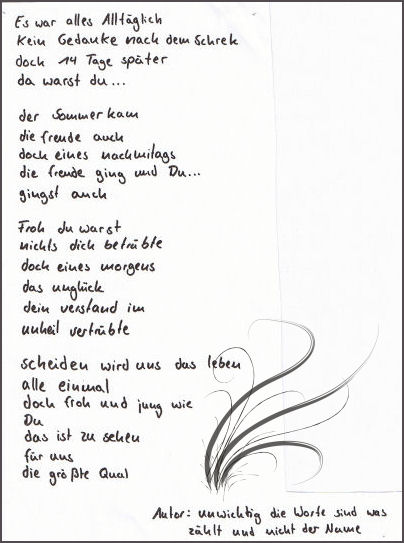 Es war alles Alltäglich
Kein Gedanke nach dem Schrek
doch 14 Tage später
da warst du...
der Sommer kam
die freude auch
doch eines nachmitags
die freude ging und Du...
gingst auch
Froh du warst
nichts dich betrübte
doch eines morgens
das unglück
dein verstand im
unheil vertrübte
scheiden wird uns das leben
alle einmal
doch froh und jung wie
Du
das ist zu sehen
für uns
die größte Qual
Autor: unwichtig die Worte sind was
zählt und nicht der Name